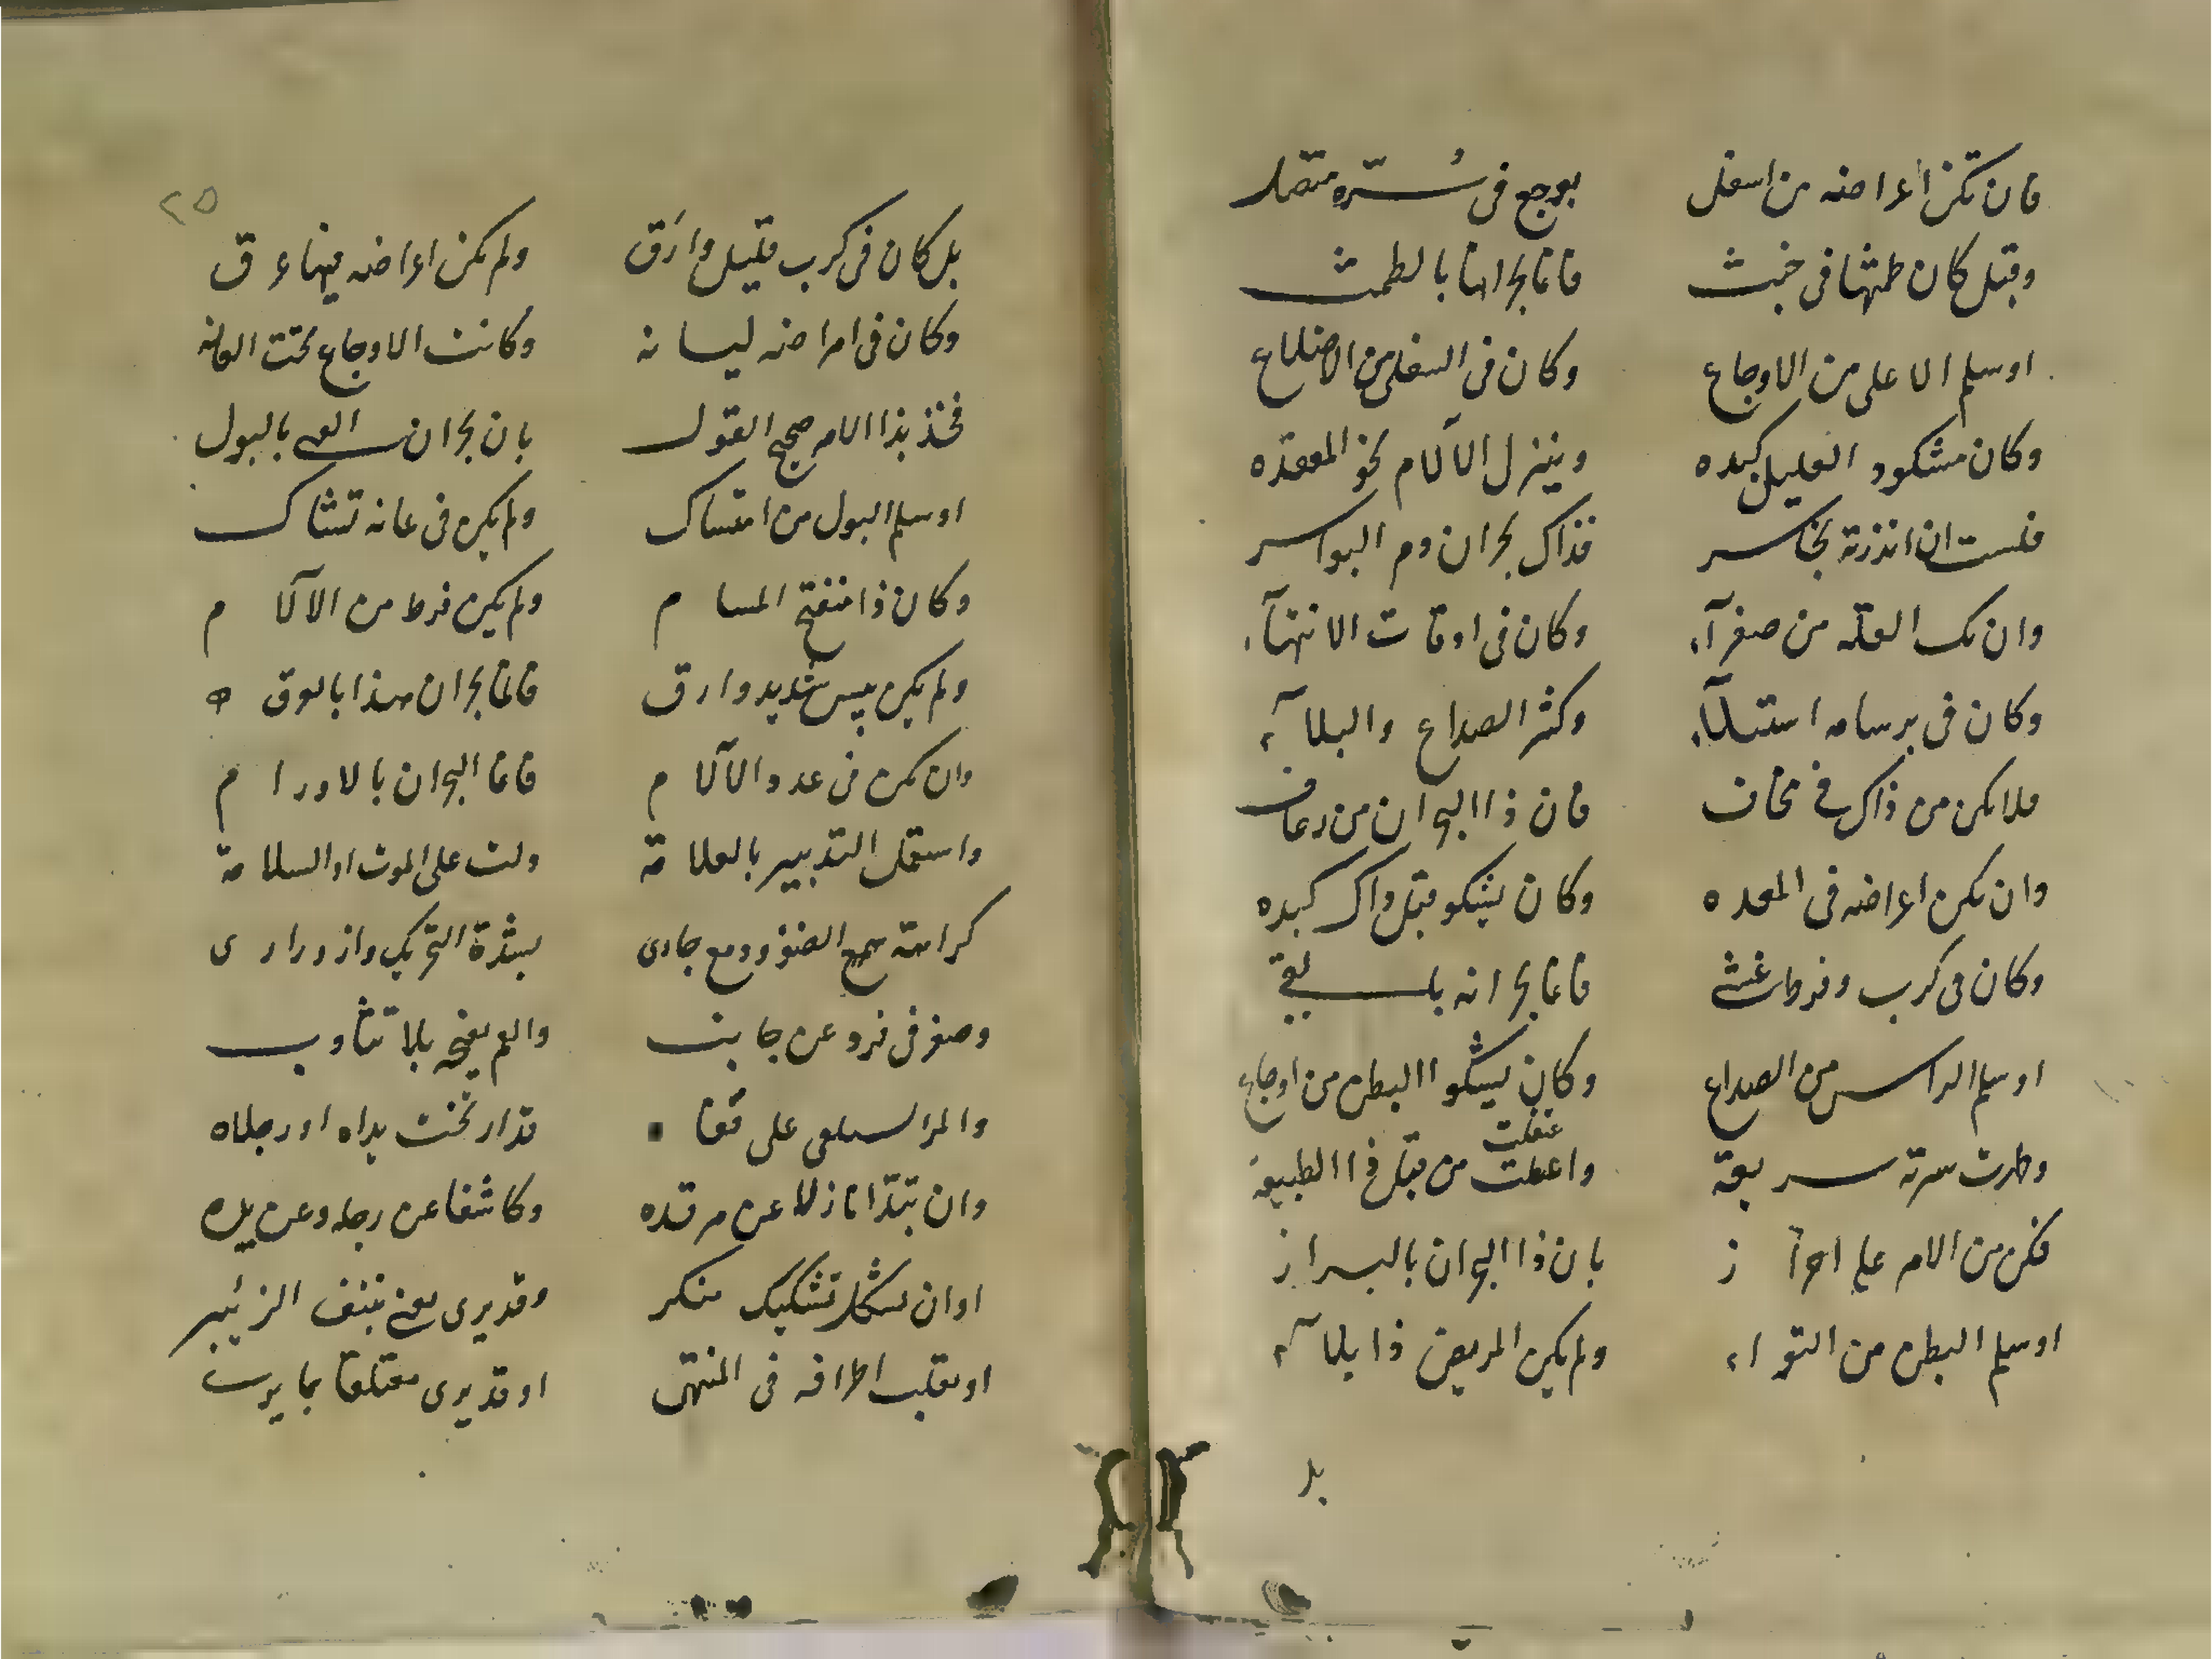 فان تكن اعراضه من اسفل بوجع في سُرّه متصل
وقبل كان طمثها في خبث فانما بحرانها بالطمث
او سلم الاعلى من الاوجاع وكان في السفلى من الاضلاع
وكان مشكو العليل كبده وينزل الآلام نحو المعقده
فلست ان انذرته بخاسر فذاك بحران دم البواسر
وان تك العلة من صفرآء وكان في اوقات الانتهآء
وكان في برسامه استلآء وكثر الصداع والبلآء
فلا تكن من ذاك في مخاف فان ذا البحران من رعاف
وان تكن اعراضه في المعده وكان يشكو قبل ذاك كبده
وكان في كرب وفرط غشي فانما بحرانه بالقي
او سلم الراس من الصداع وكان يشكو البطن من اوجاع
وطرت سرته سريعة واعطت من قبل ذا الطبيعة
عقلت
فكن من الامر على احرآز بان ذا البحران بالبراز
او سلم البطن من التواء ولم يكن المريض ذا بلآء
بل
٢٥
بل كان في كرب قليل وارَق ولم تكن اعراضه فيها عرق
وكان في امراضه ليانه وكانت الاوجاع تحت العانه
فخذ بذا الامر صحيح القول بان بحران الفتى بالبول
او سلم البول من امتساك ولم يكن في عانه تشاك
وكان ذا منفتح المسام ولم يكن فرط من الآلام
ولم يكن يبس شديد وارق فانما بحران هذا بالعرق
وان تكن في غدد الآلام فانما البحران بالاورام
واستعمل التدبير بالعلامة دلت على الموت او السلامة
كراهة سمع الضوء ودمع جاري بشدة التحريك وازوراري
وصغر في فرد عن جانب والفم يفتح بلا تثاوب
والمرا يستلقي على قفاه قد ارتخت يداه او رجلاه
وان تبدّا نازلا عن مرقده وكاشفا عن رجله وعن يده
او ان تشكل تشكيك منكر وقد يرى يعني بنتف الزئبر
او يقلب اطرافه في المنتهى او قد يرى معتلقا بما يرى